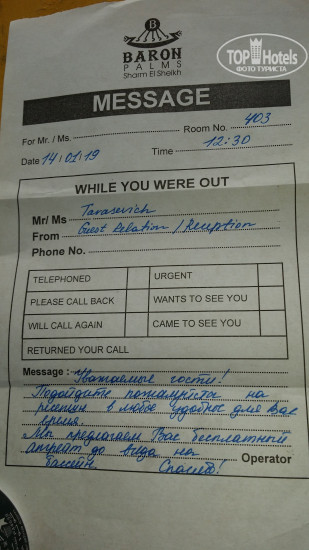 B
BARON
PALMS
Sharm El Sheikh
TopHotels
ФОТО ТУРИСТА
MESSAGE
For Mr. / Ms. Room No. 403
Date 14/01/19 Time 12:30
WHILE YOU WERE OUT
Mr/ Ms Tarasevich
From Guest Relation / Reception
Phone No.
TELEPHONED URGENT
PLEASE CALL BACK WANTS TO SEE YOU
WILL CALL AGAIN CAME TO SEE YOU
RETURNED YOUR CALL
Message : Уважаемые гости!
Подойдите пожалуйста на
ресепшн в любое удобное для вас
время.
Мы предлагаем Вас бесплатный
апгрейт до вида на
басейн. Спасибо! Operator